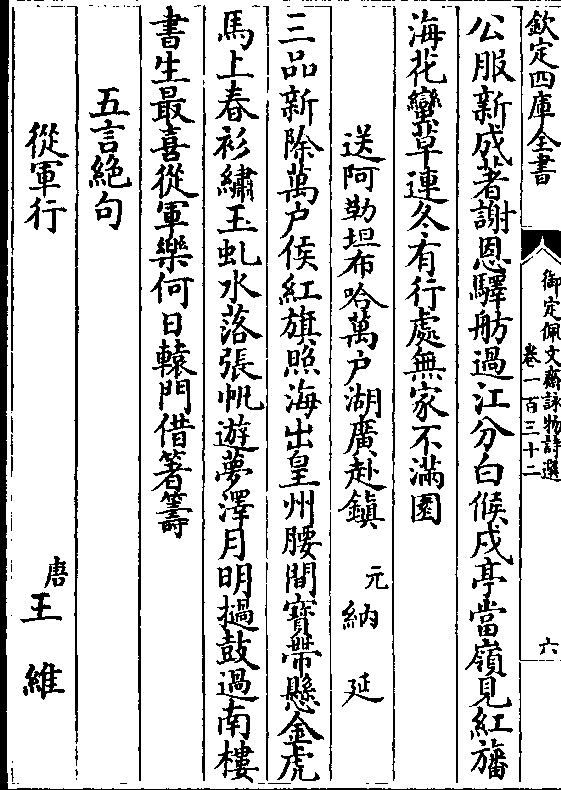 欽定四庫全書
御定佩文齋詠物詩選
卷一百三十二
六
公服新成著謝恩驛舫過江分白候戍亭當嶺見紅旛
海花蠻草連冬有行處無家不滿園
送阿勒坦布哈萬户湖廣赴鎮 元納延
三品新除萬户侯紅旗照海出皇州腰間寶帶懸金虎
馬上春衫繡玉虬水落張帆遊夢澤月明撾鼓過南樓
書生最喜從軍樂何日轅門借箸籌
五言絶句
從軍行 唐王維